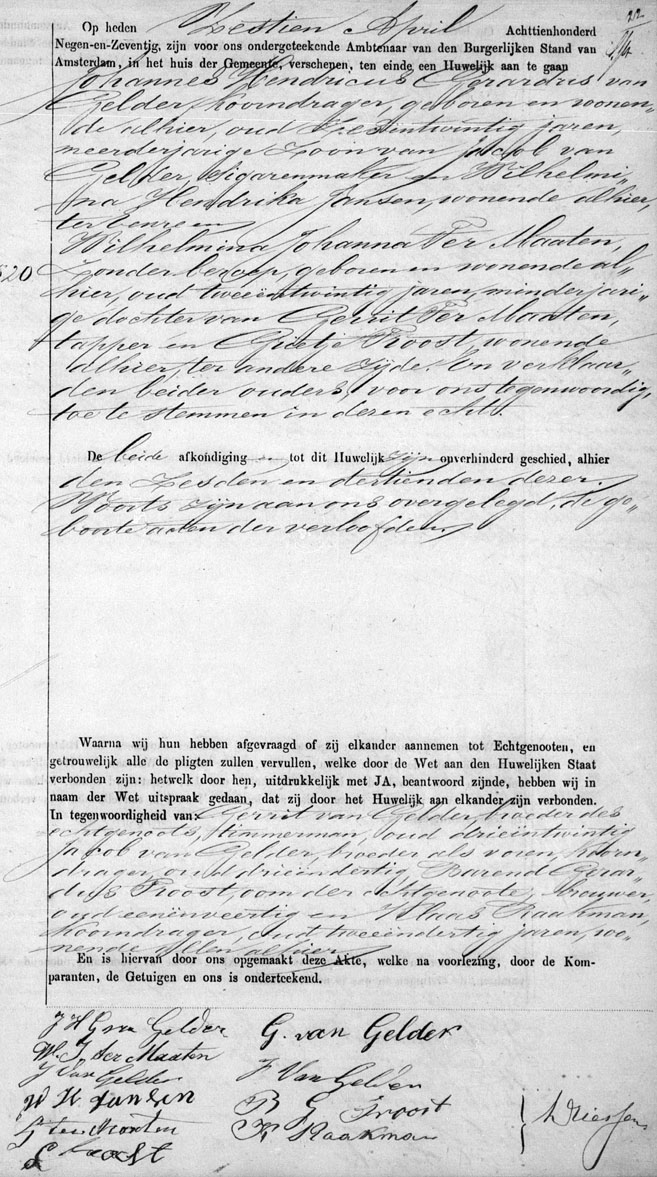 22
Op heden Zestien April Achttienhonderd
Negen-en-Zeventig, zijn voor ons ondergeteekende Ambtenaar van den Burgerlijken Stand van
Amsterdam, in het huis der Gemeente, verschenen, ten einde een Huwelijk aan te gaan
Johannes Hendricus Gerardus van
Gelder, koorndrager, geboren en wonen-
de alhier, oud zesentwintig jaren,
meerderjarige zoon van Jacob van
Gelder, sigarenmaker en Wilhelmi-
na Hendrika Jansen, wonende alhier,
ter eenre en
Wilhelmina Johanna Ter Maaten,
zonder beroep, geboren en wonende al-
hier, oud tweeëntwintig jaren, minderjari-
ge dochter van Gerrit Ter Maaten,
tapper en Grietje Troost, wonende
alhier, ter andere zijde. En verklaar-
den beider ouders, voor ons tegenwoordig,
toe te stemmen in deren echt.
De beide afkondiging tot dit Huwelijk zijn onverhinderd geschied, alhier
den zesden en dertienden dezer.
Voorts zijn aan ons overgelegd, de ge-
boorteacten der verloofden
Waarna wij hun hebben afgevraagd of zij elkander aannemen tot Echtgenooten, en
getrouwelijk alle de pligten zullen vervullen, welke door de Wet aan den Huwelijken Staat
verbonden zijn: hetwelk door hen, uitdrukkelijk met JA, beantwoord zijnde, hebben wij in
naam der Wet uitspraak gedaan, dat zij door het Huwelijk aan elkander zijn verbonden.
In tegenwoordigheid van: Gerrit van Gelder, broeder des
echtgenoots, timmerman, oud drieëntwintig
Jacob van Gelder, broeder als voren, koorn-
drager, oud drieëndertig, Barend Gerar-
dus Troost, oom der echtgenoote, brouwer,
oud eenënveertig en Klaas Raakman,
koorndrager, oud tweeëndertig jaren, wo-
nende allen alhier
En is hiervan door ons opgemaakt deze Akte, welke na voorlezing, door de Kom-
paranten, de Getuigen en ons is onderteekend.
J H G van Gelder G. van Gelder
W. J. ter Maaten
J van Gelder J Van Gelder
W H Jansen B G Troost
G ter Maaten K Raakman
G Troost